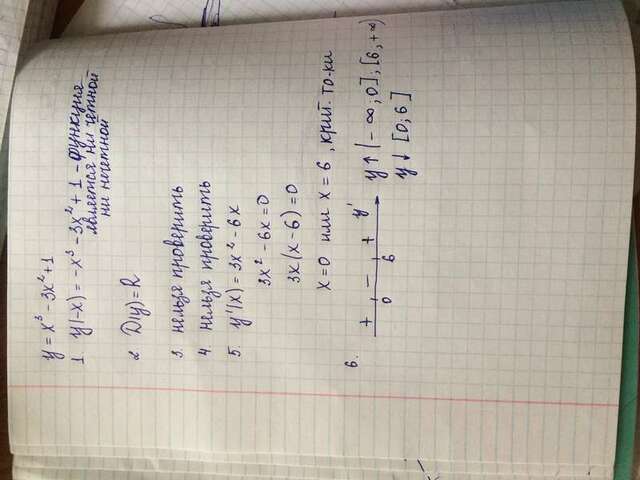 y = x³ - 3x² + 1
1. y(-x) = -x³ - 3x² + 1 - функция
является ни чётной
ни нечетной
2. D(y) = R
3. нельзя проверить
4. нельзя проверить
5. y'(x) = 3x² - 6x
3x² - 6x = 0
3x(x - 6) = 0
x = 0 или x = 6, крит. то-ки
6. + - + y' y↑ (-∞; 0]; [6, +∞)
0 6 y↓ [0; 6]